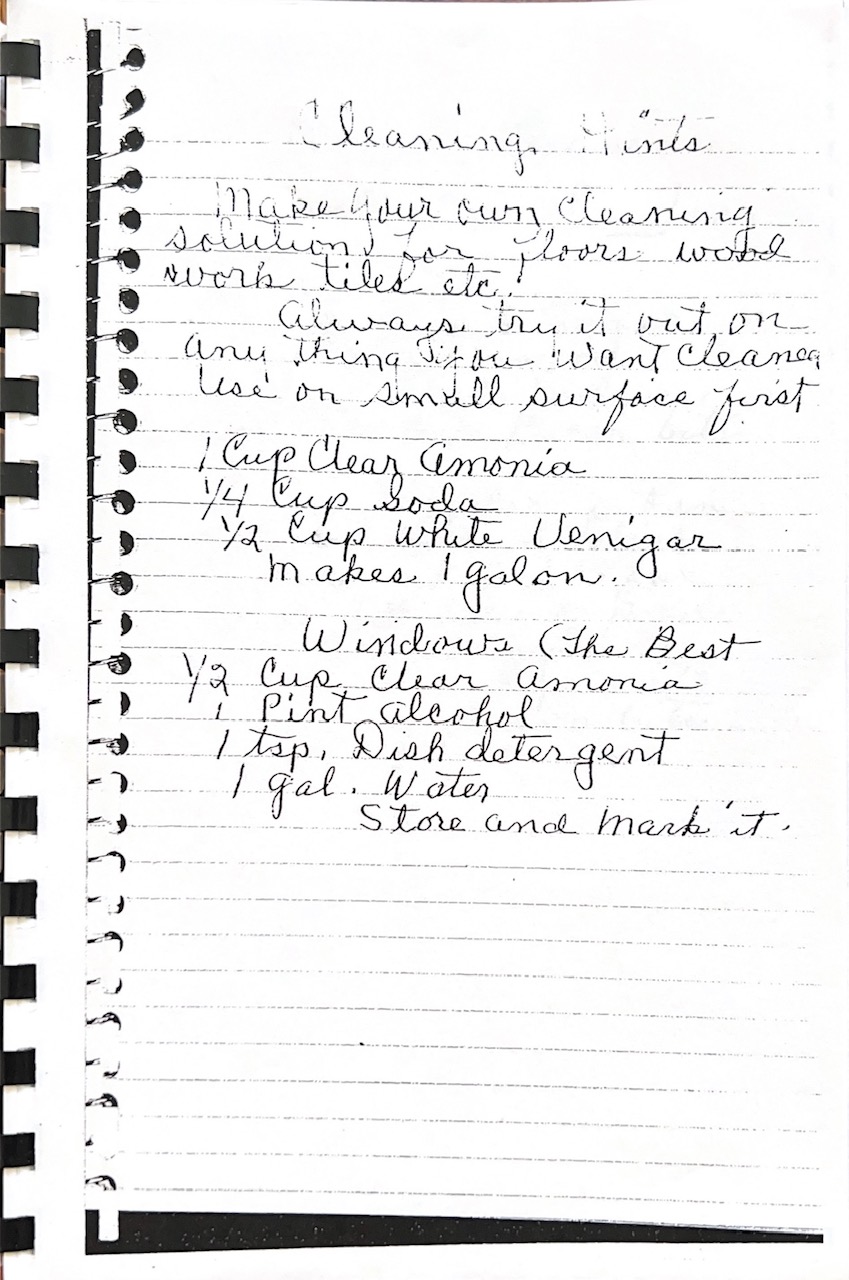 Cleaning Hints
Make Your own Cleaning
solution for floors wood
work tiles etc.
Always try it out on
any thing you want Cleaned
Use on small surface first
1 Cup Clear Amonia
1/4 Cup Soda
1/2 Cup White Venigar
Makes 1 galon.
Windows (The Best
1/2 Cup Clear Amonia
1 Pint alcohol
1 tsp. Dish detergent
1 gal. Water
Store and Mark it.